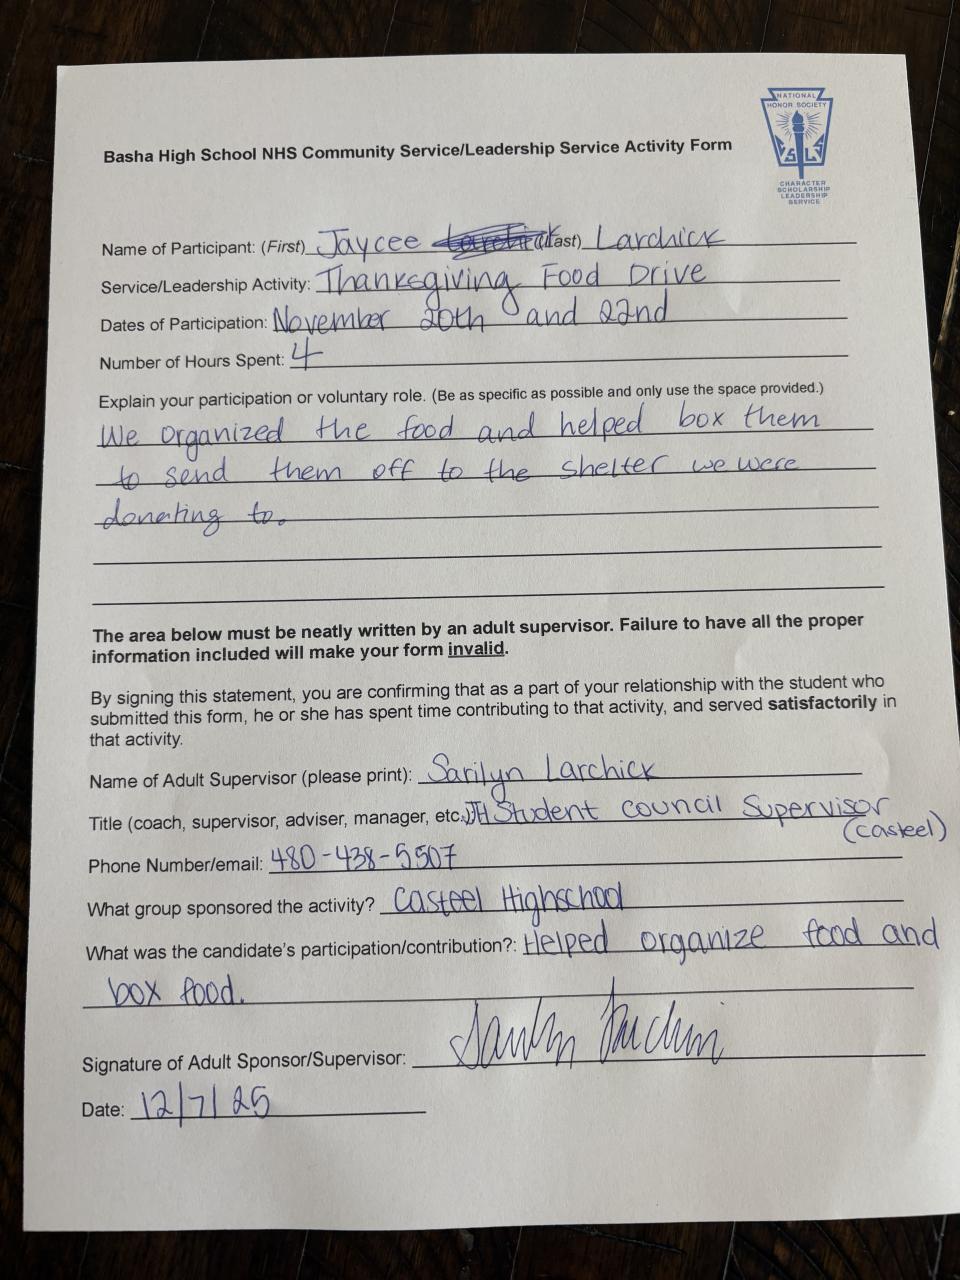 NATIONAL
HONOR SOCIETY
S L
CHARACTER
SCHOLARSHIP
LEADERSHIP
SERVICE
Basha High School NHS Community Service/Leadership Service Activity Form
Name of Participant: (First) Jaycee (Last) Larchick
Service/Leadership Activity: Thanksgiving Food Drive
Dates of Participation: November 20th and 22nd
Number of Hours Spent: 4
Explain your participation or voluntary role. (Be as specific as possible and only use the space provided.)
We organized the food and helped box them
to send them off to the shelter we were
donating to.
The area below must be neatly written by an adult supervisor. Failure to have all the proper
information included will make your form invalid.
By signing this statement, you are confirming that as a part of your relationship with the student who
submitted this form, he or she has spent time contributing to that activity, and served satisfactorily in
that activity.
Name of Adult Supervisor (please print): Sarilyn Larchick
Title (coach, supervisor, adviser, manager, etc. JH Student council Supervisor
(casteel)
Phone Number/email: 480-438-5507
What group sponsored the activity? Casteel Highschool
What was the candidate's participation/contribution?: Helped organize food and
box food.
Signature of Adult Sponsor/Supervisor:
Date: 12/7/25